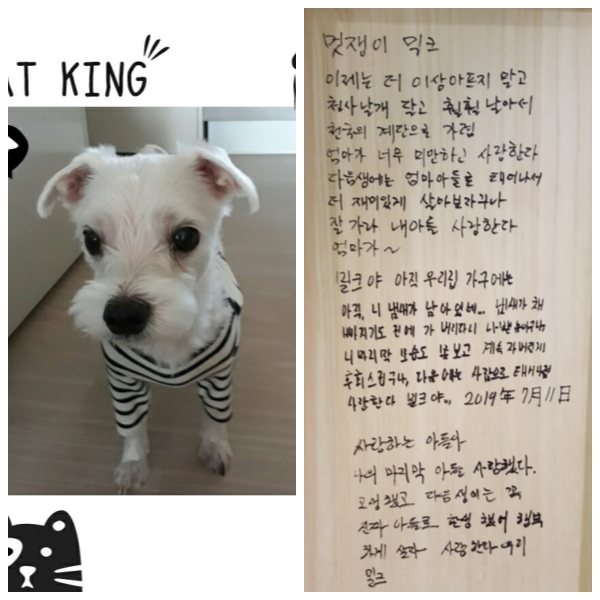 AT KING
멋쟁이 밀크
이제는 더 이상아프지 말고
천사날개 달고 훨훨날아서
천국의 계단으로 가렴
엄마가 너무 미안하고 사랑한다
다음생에는 엄마아들로 태어나서
더 재미있게 살아보자꾸나
잘 가라 내아들 사랑한다
엄마가~
밀크야 아직 우리집 가구에는
아직, 니 냄새가 남아 있네... 냄새가 채
빠지기도 전에 가 버리다니
니 마지막 모습도 못 보고 계속
후회스럽구나, 다음 사람으로
사랑한다 밀크야.. 2019年 7月11日
사랑하는 아들아
나의 마지막 아들 사랑했다.
고생했고 다음생에는 꼭
진짜 아들로 환생 했어 행복
하게 살자 사랑한다
밀크